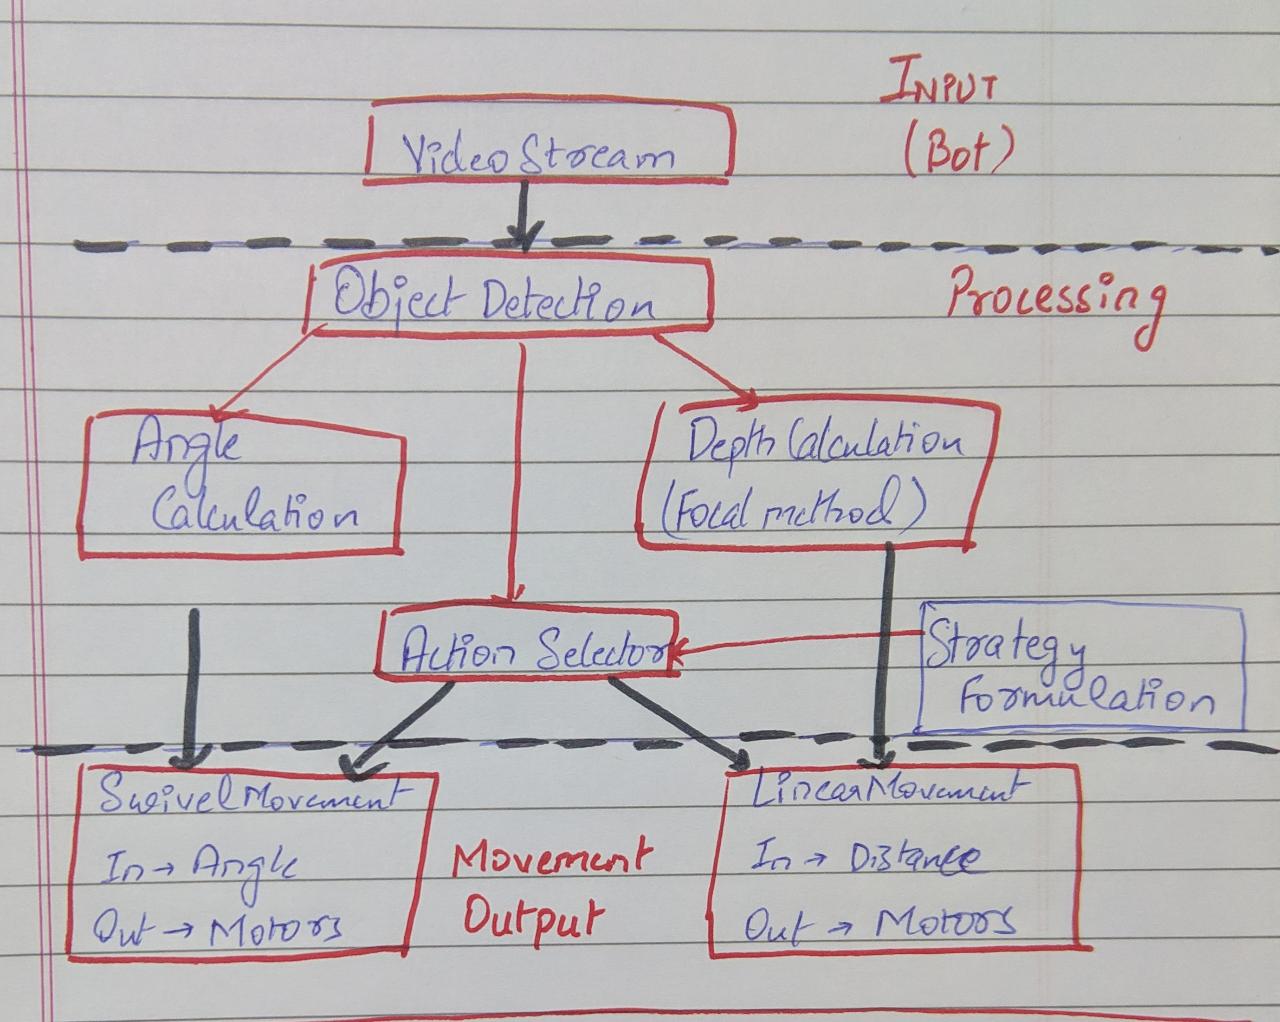 INPUT
(Bot)
Video Stream
Object Detection
Processing
Angle
Calculation
Depth Calculation
(Focal method)
Action Selector
Strategy
Formulation
Swivel Movement
In → Angle
Out → Motors
Movement
Output
Linear Movement
In → Distance
Out → Motors